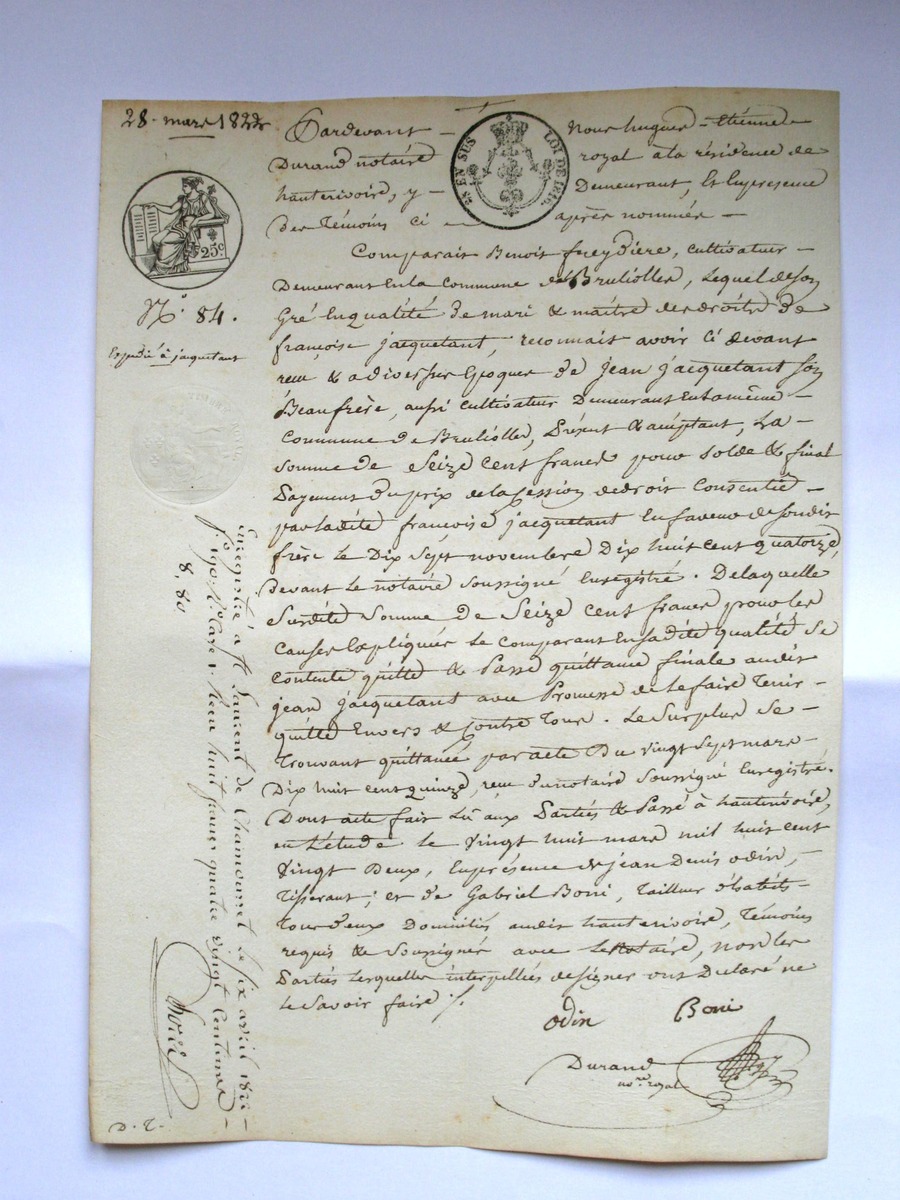 28. mars 1822
Pardevant Nous hugues Etienne
Durand notaire royal à la résidence de
hauterivoire, y Demeurant, Et Enpresence
Des Témoins ci après nommés
EN SUS LOI DE 1816.
25c
N.° 84.
Expédié à jacquetant
Comparait Benoit freydiere, cultivateur
Demeurant Enla Commune de Brulioller, Lequel deson
Gré Enqualité de mari & maître des droits de
françoise jacquetant, reconnait avoir ci devant
recu & adiverses Epoques de jean jacquetant son
Beaufrère, aussi cultivateur Demeurant Enlamême
Commune de Brulioller, Présent & acceptant, La
Somme de Seize cent francs pour solde & final
Payement du prix de la Cession de droit Consentie
par ladite françoise jacquetant Enfaveur desondit
frère le Dix Sept novembre Dix huit cent quatorze,
Devant Le notaire Soussigné Enregistré. De laquelle
Surdite Somme de Seize cent francs pour les
Causes Expliquées Le comparant Ensadite qualité Se
Contente quitte & Passe quittance finale audit
jean jacquetant avec Promesse de le faire Tenir
quitte Envers & Contre Tous. Le Surplus Se
Trouvant quittancé par acte Du vingt Sept mars
Dix huit cent quinze, recu du notaire Soussigné Enregistré.
Dont acte fait Lû aux Parties & Passé à hauterivoire,
en l'étude le vingt huit mars mil huit cent
Vingt Deux, Enprésence de jean Denis odin,
Tisserant; et de Gabriel Boni, Tailleur d'habits
Tous deux Domiciliés audit hauterivoire, Témoins
requis & Soussignés avec le Notaire, non les
Parties Lesquelles interpellées de signer ont Declaré ne
le Savoir faire ./.
odin Boni
Durand
no.re royal
Enregistré à St Laurent de Chamousset le six avril 1822
Recu huit francs quatre vingt Centimes
8,80
D. T.